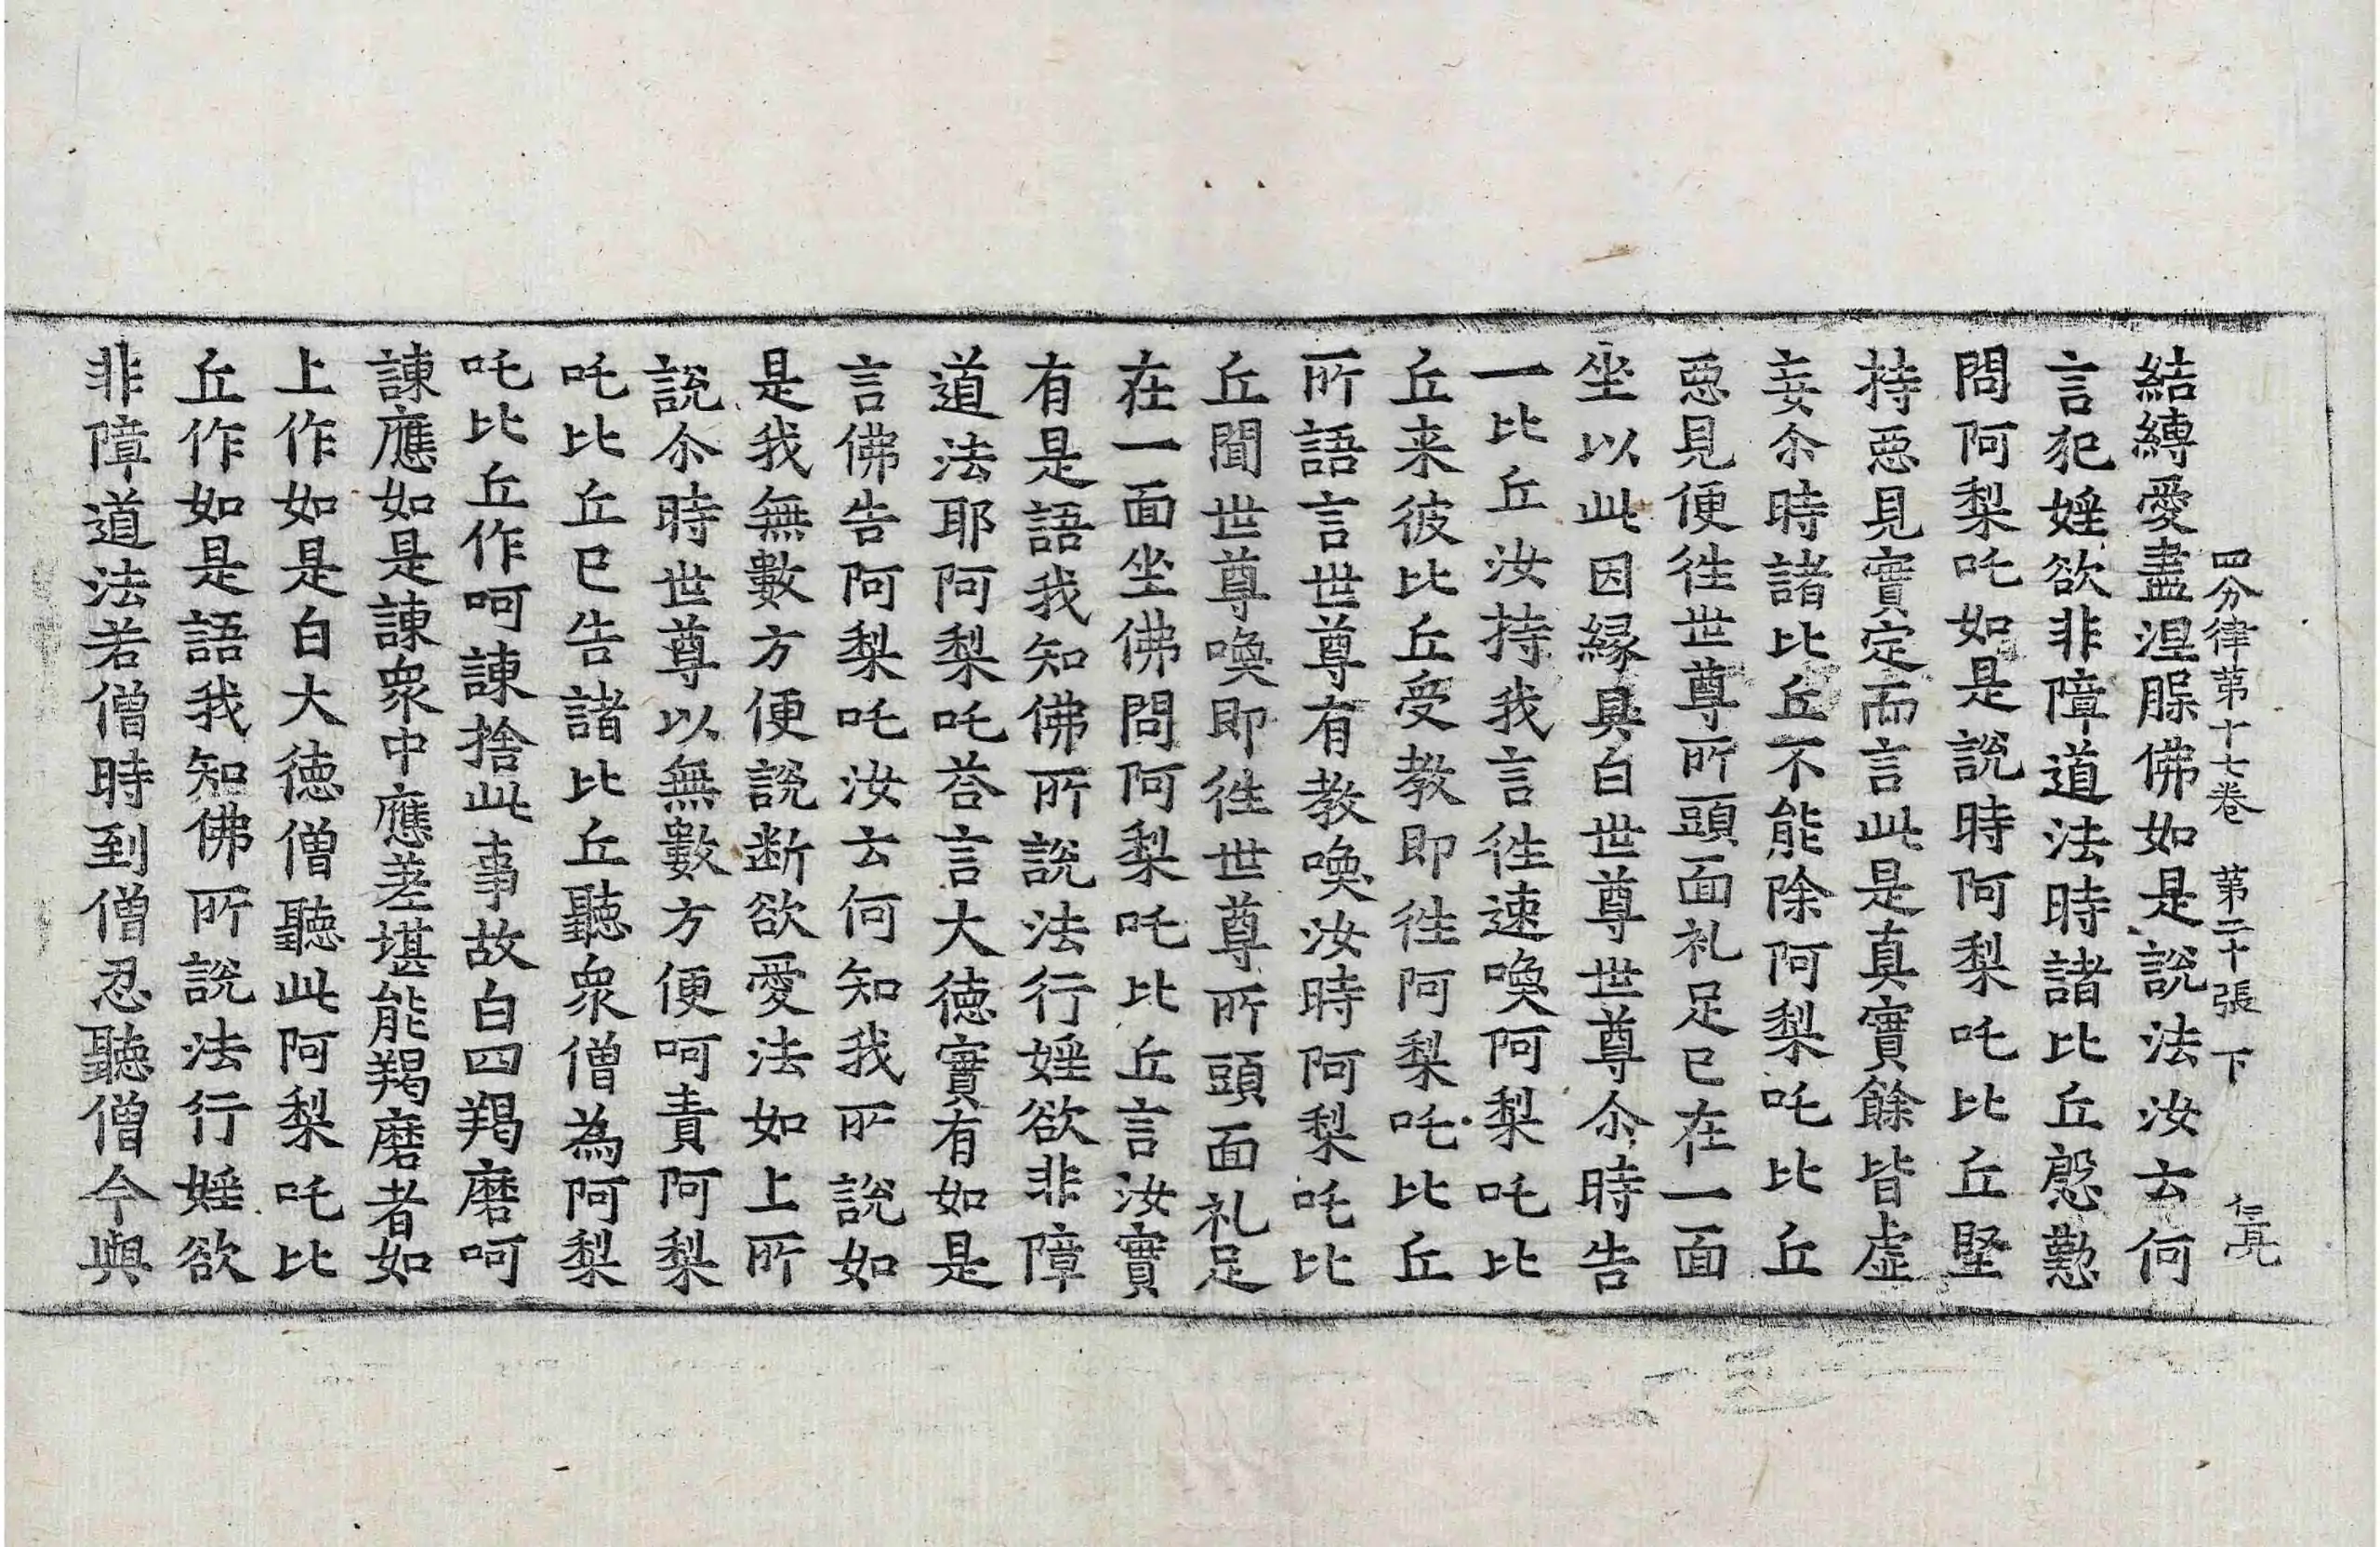 四分律第十七卷 第二十張 下 仁亮
結縛愛盡涅脲佛如是說法汝云何
言犯婬欲非障道法時諸比丘慇懃
問阿梨吒如是說時阿梨吒比丘堅
持惡見實定而言此是真實餘皆虛
妄尒時諸比丘不能除阿梨吒比丘
惡見便往世尊所頭面礼足已在一面
坐以此因緣具白世尊世尊尒時告
一比丘汝持我言往速喚阿梨吒比
丘来彼比丘受教即往阿梨吒比丘
所語言世尊有教喚汝時阿梨吒比
丘聞世尊喚即往世尊所頭面礼足
在一面坐佛問阿梨吒比丘言汝實
有是語我知佛所說法行婬欲非障
道法耶阿梨吒荅言大德實有如是
言佛告阿梨吒汝云何知我所說如
是我無數方便說断欲愛法如上所
說尒時世尊以無數方便呵責阿梨
吒比丘已告諸比丘聽眾僧為阿梨
吒比丘作呵諫捨此事故白四羯磨呵
諫應如是諫眾中應差堪能羯磨者如
上作如是白大德僧聽此阿梨吒比
丘作如是語我知佛所說法行婬欲
非障道法若僧時到僧忍聽僧今與